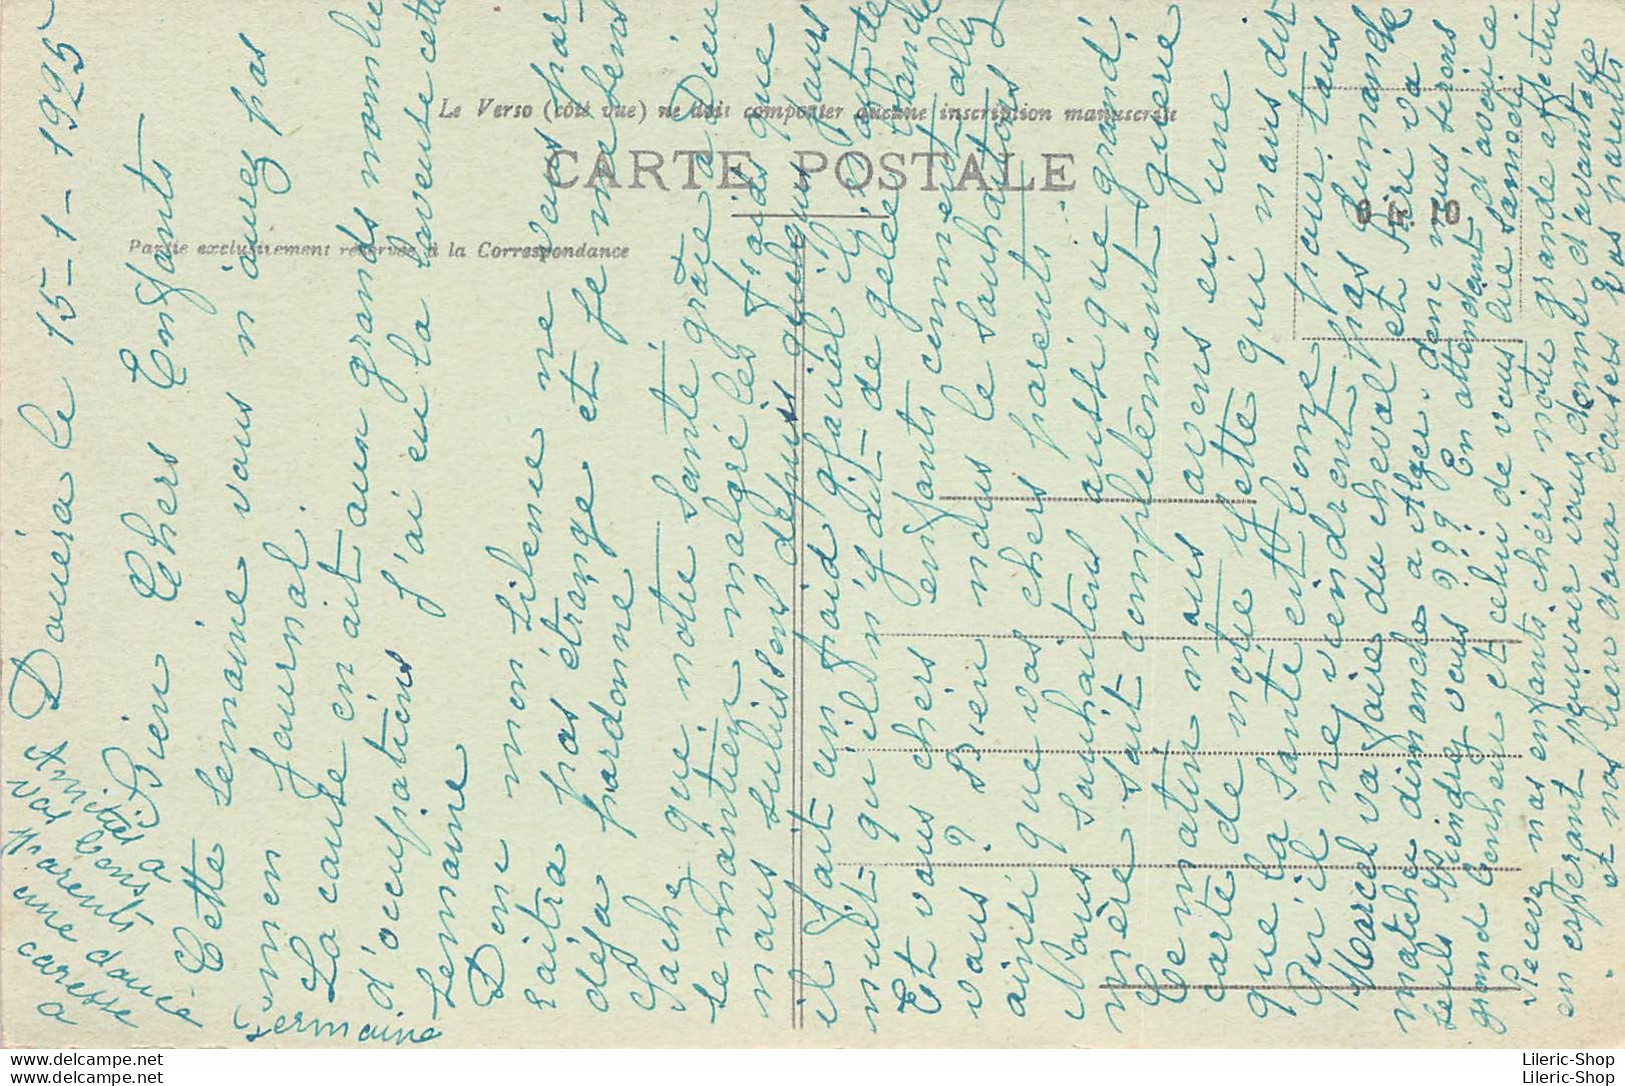 Le Verso (côté vue) ne doit comporter aucune inscription manuscrite
CARTE POSTALE
Partie exclusivement réservée à la Correspondance
0 fr. 10
Douéra le 15-1-1925
Bien Chers Enfants
Cette semaine vous n'aurez pas
mon journal.
La cause en ait aux grands nombre
d'occupations j'ai eu la lineuse cette
semaine
Donc mon silence ne vous par-
raitra pas étrange et je me sens
déja pardonné
Sachez que notre santé, grâce a Dieu
se mantien malgré les froids que
nous subissons depuis quelques jours
il fait un froid glacial il
nuit qu'il n'y ait de gelée blanche
Et vous chers enfants comment allez
vous ? Bien nous le souhaitons
ainsi que vos chers parents.
Nous souhaitons aussi que grand'
mère soit complètement guérie
Ce matin nous avons eu une
carte de notre Yvette qui nous dit
que la santé est bonne pour tous
Puis il ne viendront pas dimanche
Marcel va faire du cheval et Pari va
matche dimanche a Alger. donc nous serons
seuls Viendrez vous ??? En attendant d'avoir ce
grand bonheur et celui de vous lire samedi
Recevez nos enfants chéris notre grande affection
en esperant pouvoir vous donner d'avantage
et nos bien doux baisers Vos parents
Amitiés a
vos bons
parents
une douce
caresse
a
Germaine
Lileric-Shop.net
Lileric-Shop.net
Lileric-Shop
Lileric-Shop